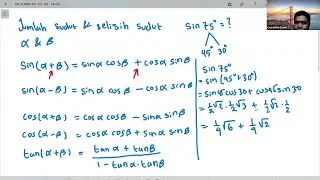 Jumlah sudut & selisih sudut
α & β
Sin(α+β) = sinα cosβ + cosα sinβ
Sin(α-β) = sinα cosβ - cosα sinβ
Cos(α+β) = cosα cosβ - sinα sinβ
Cos(α-β) = cosα cosβ + sinα sinβ
tan(α+β) = tanα + tanβ
1 - tanα · tanβ
Sin 75° = ?
45° 30°
Sin 75°
= sin (45°+30°)
= sin 45 cos 30 + cos 45 sin 30
= 1/2 √2 · 1/2 √3 + 1/2 √2 · 1/2
= 1/4 √6 + 1/4 √2